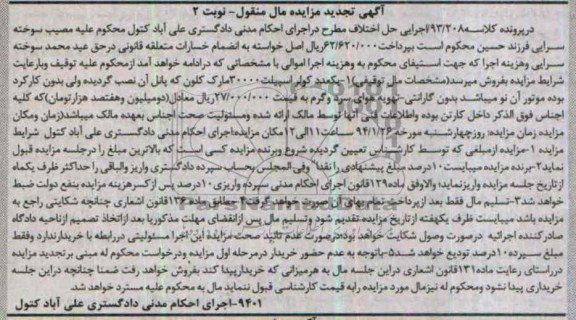 آگهی تجدید مزایده مال منقول- نوبت ۲
درپرونده کلاسه۹۳/۲۰۸اجرایی حل اختلاف مطرح دراجرای احکام مدنی دادگستری علی آباد کتول محکوم علیه مصیب سوخته
سرایی فرزند حسین محکوم است بپرداخت۶۲/۶۲۰/۰۰۰ریال اصل خواسته به انضمام خسارات متعلقه قانونی درحق عید محمد سوخته
سرایی وهزینه اجرا که جهت استیفای محکوم به وهزینه اجرا اموالی با مشخصاتی که درادامه خواهد آمد ازمحکوم علیه توقیف وبارعایت
شرایط مزایده بفروش میرسد(مشخصات مال توقیفی)۱-یکعدد کولر اسپیلت۳۰۰۰۰مارک کلون که پانل آن نصب گردیده ولی بدون کارکرد
بوده موتور آن نو میباشد بدون گارانتی-تهویه هوای سرد وگرم به قیمت ۲۷/۰۰۰/۰۰۰ریال معادل(دومیلیون وهفتصد هزارتومان)که کلیه
اجناس فوق الذکر داخل کارتن بوده واطلاعات فنی آنها توسط مالک ارائه شده ومسئولیت صحت اجناس بعهده مالک میباشد(زمان ومکان
مزایده) زمان مزایده: روزچهارشنبه مورخه ۹۴/۱/۲۶ ساعت۱۱الی۱۲مکان مزایده:اجرای احکام مدنی دادگستری علی آباد کتول شرایط
مزایده ۱-مزایده ازمبلغی که توسط کارشناس تعیین گردیده شروع وبرنده مزایده کسی است که بالاترین مبلغ را درجلسه مزایده قبول
نماید۲-برنده مزایده میبایست۱۰درصد مبلغ پیشنهادی را نقدا" وفی المجلس بحساب سپرده دادگستری واریز والباقی را حداکثر ظرف یکماه
ازتاریخ جلسه مزایده واریزنماید؛ والاوفق ماده۱۲۹قانون اجرای احکام مدنی سپرده واریزی۱۰درصد پس ازکسرهزینه مزایده بنفع دولت ضبط
خواهد شد۳-تسلیم مال فقط بعد ازپرداخت تمام بهای آن صورت خواهد گرفت۴-مطابق ماده ۱۳۶قانون اشعاری چنانچه شکایتی راجع به
مزایده باشد میبایست ظرف یکهفته ازتاریخ مزایده تقدیم شود وتسلیم مال پس ازانقضای مهلت مذکوریا بعد ازاتخاذ تصمیم ازناحیه دادگاه
صادرکننده اجرائیه درصورت وصول شکایت خواهد بود؛درصورت عدم تائید صحت مزایده این اجرا مسئولیتی دررابطه با خریدارندارد وفقط
مبلغ سپرده۱۰درصد تودیع خواهد شد۵-باتوجه به عدم حضور خریدار درمرحله اول مزایده ودرخواست محکوم له مبنی برتجدید مزایده
درراستای رعایت ماده۱۳۱قانون اشعاری دراین جلسه مال به هرمیزانی که خریدارپیدا کند بفروش خواهد رفت ضمنا چنانچه دراین جلسه
خریداری پیدا نشود ومحکوم له نیزمال مورد مزایده رابه قیمت کارشناسی قبول ننماید مال به محکوم علیه مسترد خواهد شد.
۹۴۰۱-اجرای احکام مدنی دادگستری علی آباد کتول